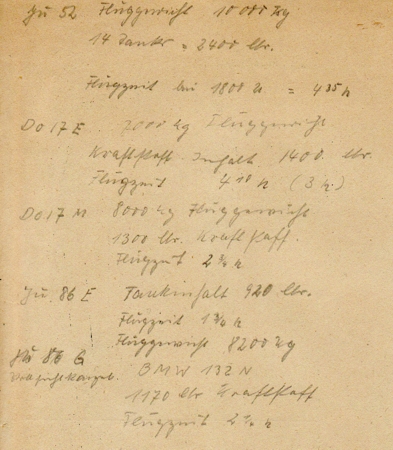 Ju 52 Fluggewicht 10 000 kg
14 Tanks = 2400 ltr.
Flugzeit bei 1800 u = 4 35 h
Do 17 E 7000 kg Fluggewicht
Kraftstoff Inhalt 1400 ltr.
Flugzeit 4 10 h (3 h.)
Do 17 M 8000 kg Fluggewicht
1300 ltr. Kraftstoff
Flugzeit 2 h
Ju. 86 E Tankinhalt 920 ltr.
Flugzeit 1 3/4 h
Fluggewicht 8200 kg
Ju 86 G BMW 132 N
1170 ltr Kraftstoff
Flugzeit 2 h